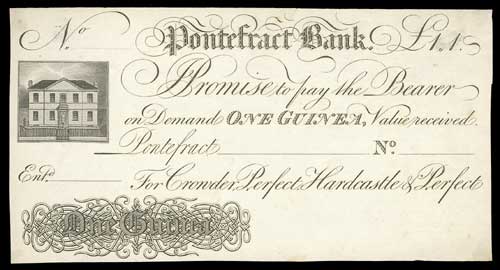 No Pontefract Bank. £1,,1,,
I Promise to pay the Bearer
on Demand ONE GUINEA, Value received.
Pontefract No
Entd. For Crowder, Perfect, Hardcastle & Perfect
One Guinea